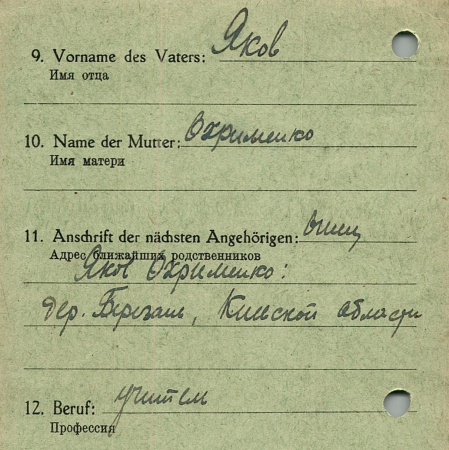 9. Vorname des Vaters: Яков
Имя отца
10. Name der Mutter: Охрименко
Имя матери
11. Anschrift der nächsten Angehörigen: отец
Адрес ближайших родственников
Яков Охрименко:
дер. Березань, Киевской области
12. Beruf: учитель
Профессия